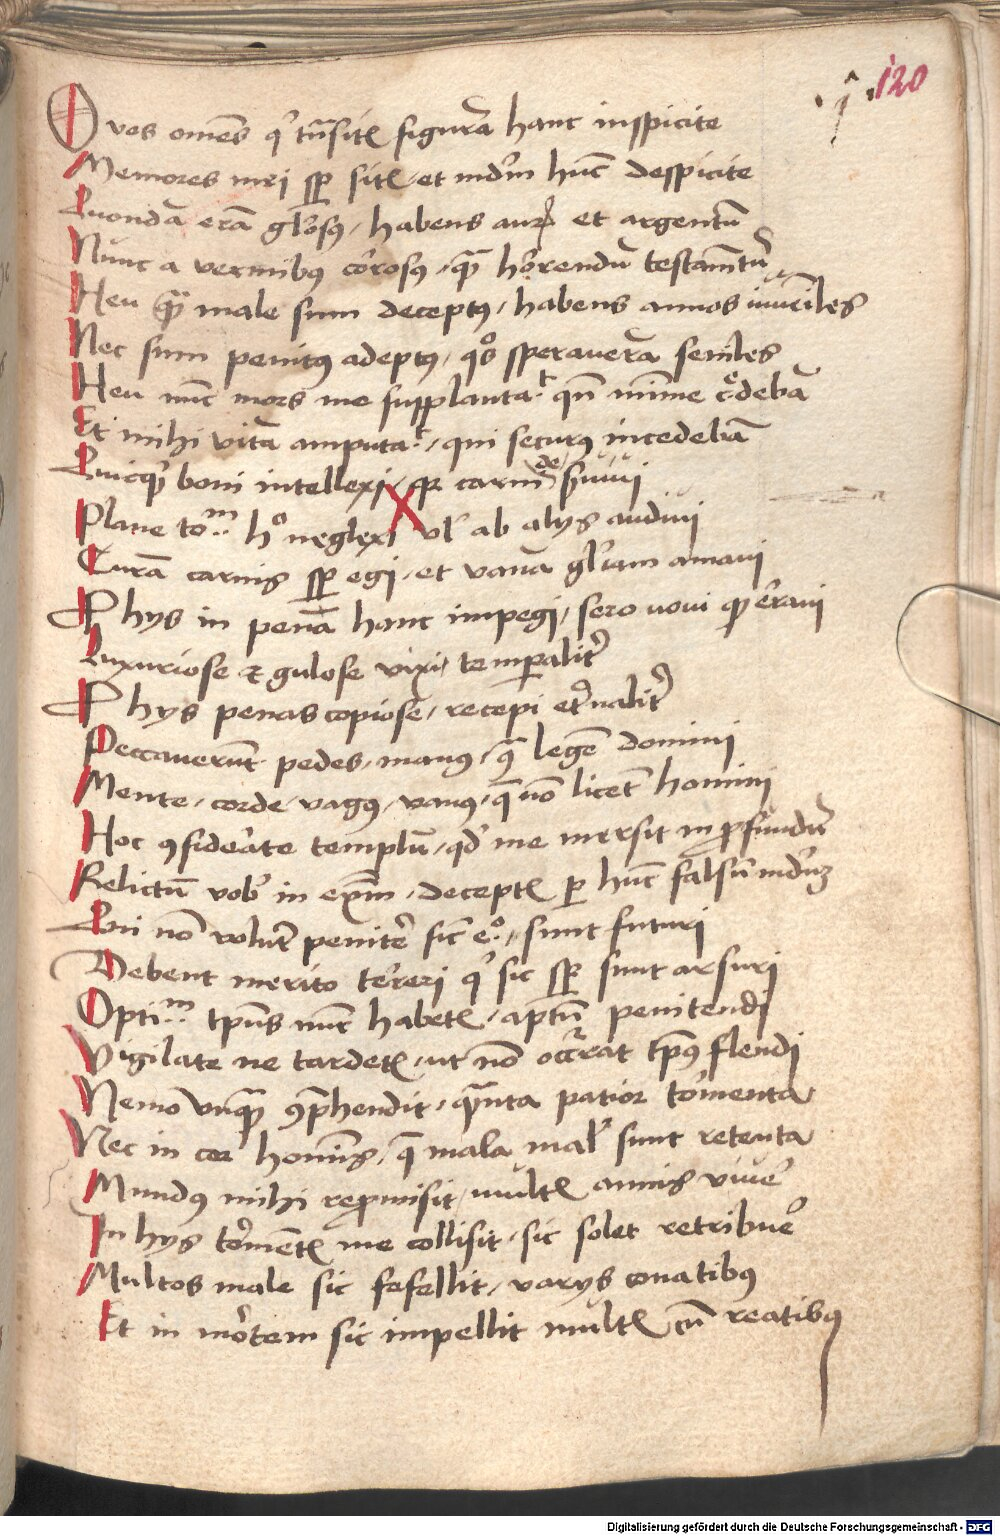 120
O vos om̄es qͥ trāsitꝭ figurā hanc inspicite
Memores mei sꝑ sitꝭ et mūdm̄ hūc despicite
Quondā erā glōsꝰ, habens aurꝭ et argentū
Nūnc a vermibꝰ corosꝰ, qm̄ horrendū testamtū
Heu qm̄ male sum deceptꝰ, habens annos iuvēiles
Nec sum penitꝰ adeptꝰ, qͦs speraverā seniles
Heu nūc mors me supplantat qn̄ mīnime c̄debā
Et mihi vitā amputat, qui securꝰ incedebā
Quicqͥd boni intellexi, qꝛ carni de s̄uiui
Plane totm̄ hͦ neglexi vl̄ ab alijs audiui
Curā carnis sꝑ egi, et vanā gl̄iam amaui
Phys in penā hanc impegi, sero noui qͥ erraui
Luxuriose & gulose vixi, temporalitͬ
Phys penas copiose, recepi et̓nalitͬ
Peccauerūt pedes, manꝰ, qͣ legē domini
Mente, corde, vagꝰ, vanꝰ, q̄ nō licet homini
Hoc ꝯsiderate templū, qd̓ me mersit in ꝓfundū
Relictū vob̓ in exm̄, deceptꝭ ꝑ hūc falsū mūdū
Qui nō volūt penitē sic eͦ, sunt futuri
Debent merito terreri qͥ sic sꝑ sunt arsuri
Optim̄ tp̄us nūc habetꝭ, aptū penitendi
Vigilate ne tardetꝭ, ut nō occ̄rat tp̄ꝰ flendi
Nemo vnqͣ ꝯp̄hendit, qͣnta patior tormenta
Nec in cor homīs, q̄ mala mal̓ sunt retenta
Mundꝰ mihi repromisit, multꝭ annis viue̓
In hys tormētꝭ me collisit, sic solet retribue̓
Multos male sic fefellit, varys conatibꝰ
Et in mortem sic impellit multꝭ cū reatibꝰ
Digitalisierung gefördert durch die Deutsche Forschungsgemeinschaft - DFG